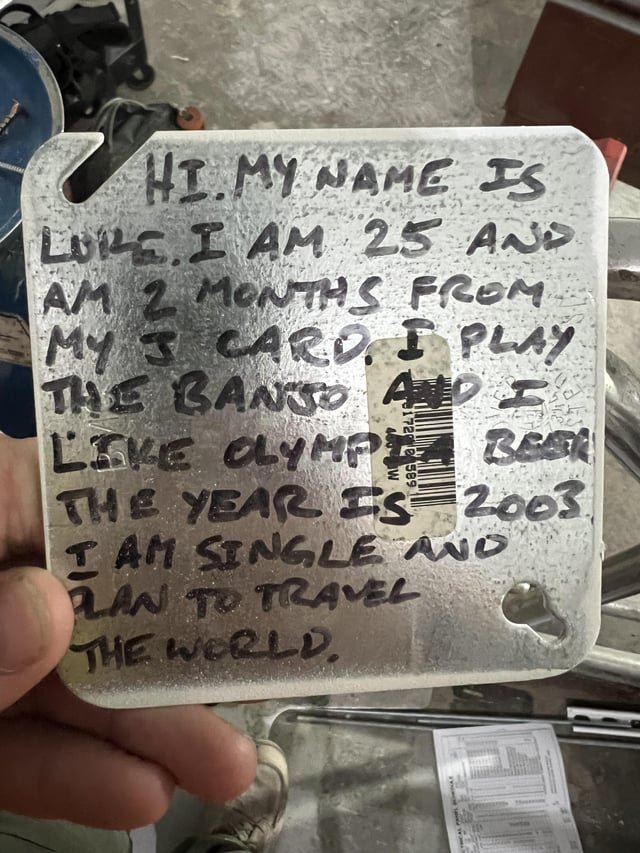 HI. MY NAME IS
LUKE. I AM 25 AND
AM 2 MONTHS FROM
MY J CARD. I PLAY
THE BANJO AND I
LIKE OLYMPIA BEER
THE YEAR IS 2003
I AM SINGLE AND
PLAN TO TRAVEL
THE WORLD.